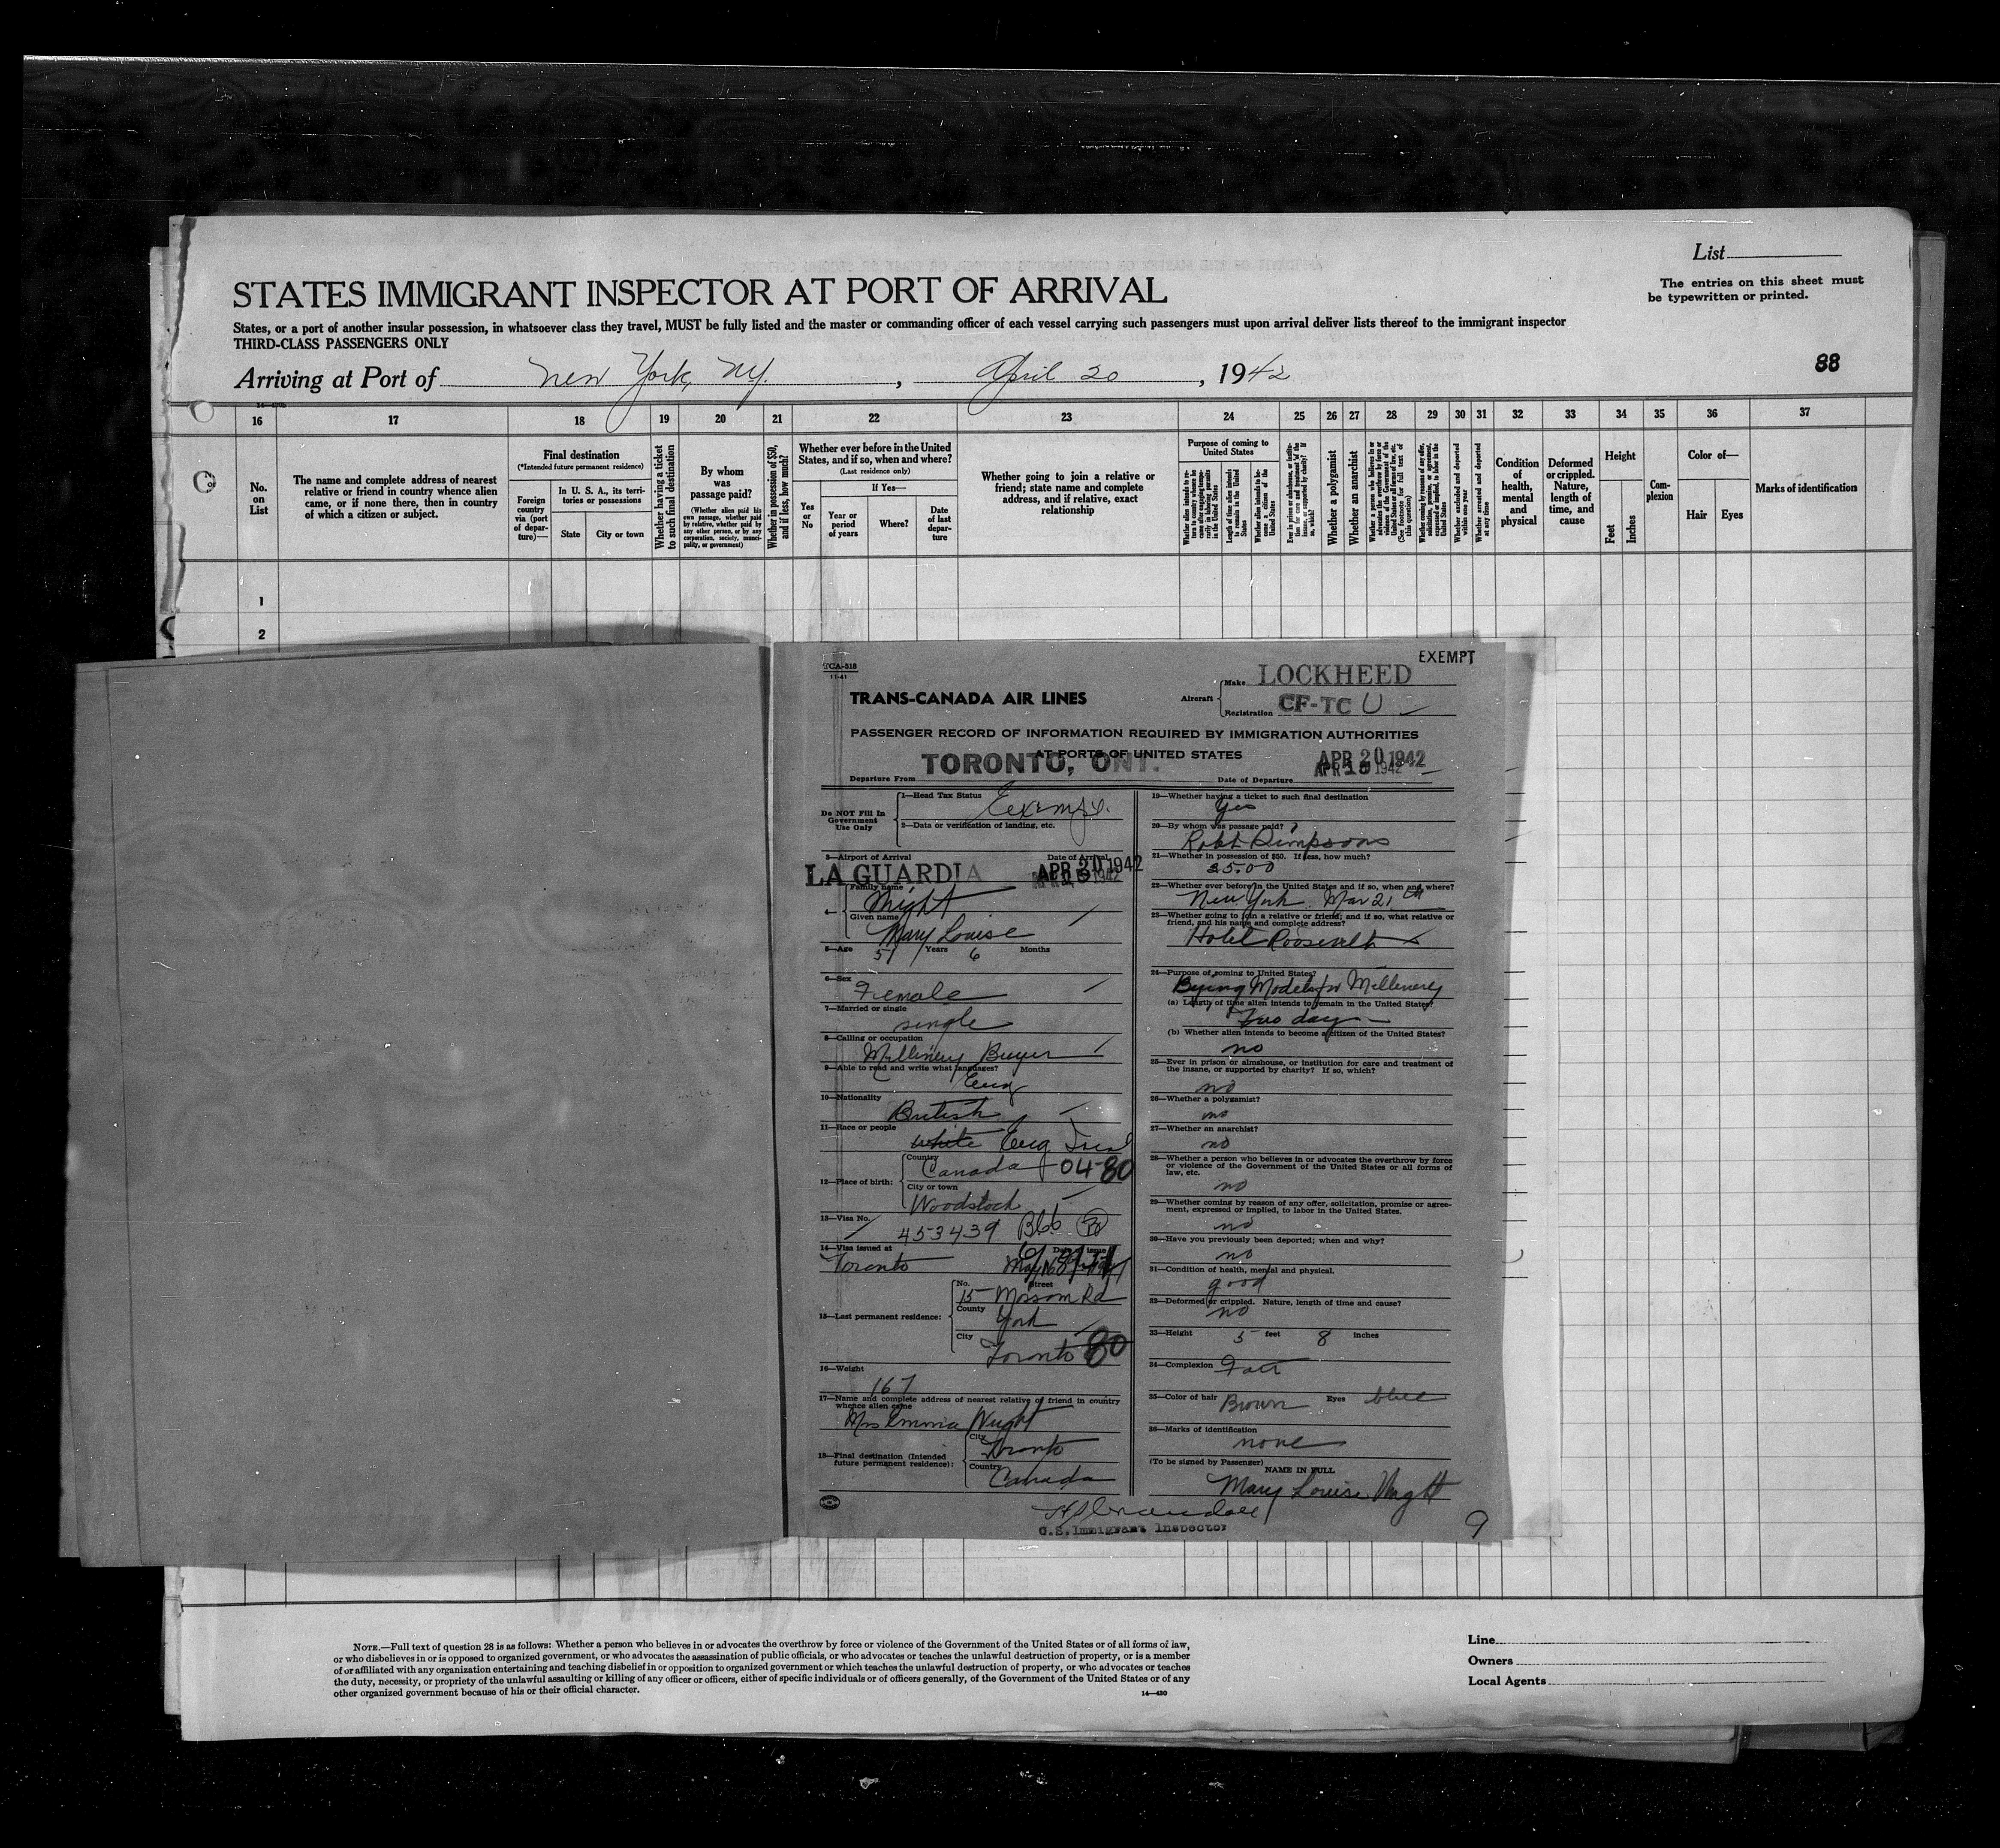 List
The entries on this sheet must
be typewritten or printed.
STATES IMMIGRANT INSPECTOR AT PORT OF ARRIVAL
States, or a port of another insular possession, in whatsoever class they travel, MUST be fully listed and the master or commanding officer of each vessel carrying such passengers must upon arrival deliver lists thereof to the immigrant inspector
THIRD-CLASS PASSENGERS ONLY
Arriving at Port of New York, NY. , April 20 , 1942
88
16 17 18 19 20 21 22 23 24 25 26 27 28 29 30 31 32 33 34 35 36 37
No.
on
List
The name and complete address of nearest
relative or friend in country whence alien
came, or if none there, then in country
of which a citizen or subject.
Final destination
(*Intended future permanent residence)
Foreign
country
via (port
of depar-
ture)—
In U. S. A., its terri-
tories or possessions
State
City or town
Whether having a ticket
to such final destination
By whom
was
passage paid?
(Whether alien paid his
own passage, whether paid
by relative, whether paid by
any other person, or by any
corporation, society, munici-
pality, or government)
Whether in possession of $50,
and if less, how much?
Whether ever before in the United
States, and if so, when and where?
(Last residence only)
If Yes—
Yes
or
No
Year or
period
of years
Where?
Date
of last
depar-
ture
Whether going to join a relative or
friend; state name and complete
address, and if relative, exact
relationship
Purpose of coming to
United States
Whether a polygamist
Whether an anarchist
Condition
of
health,
mental
and
physical
Deformed
or crippled.
Nature,
length of
time, and
cause
Height
Feet
Inches
Com-
plexion
Color of—
Hair
Eyes
Marks of identification
1
2
TCA-518
11-41
EXEMPT
TRANS-CANADA AIR LINES
Aircraft
Make LOCKHEED
Registration CF-TC U
PASSENGER RECORD OF INFORMATION REQUIRED BY IMMIGRATION AUTHORITIES
AT PORTS OF UNITED STATES
Departure From TORONTO, ONT.
Date of Departure APR 20 1942
APR 15 1942
Do NOT Fill In
Government
Use Only
1—Head Tax Status Exempt.
2—Data or verification of landing, etc.
3—Airport of Arrival Date of Arrival
LA GUARDIA APR 20 1942
4— Family name
Wright
Given name
Mary Louise
5—Age 51 Years 6 Months
6—Sex
Female
7—Married or single
single
8—Calling or occupation
Millinery Buyer
9—Able to read and write what languages?
Eng
10—Nationality
British
11—Race or people
white Eng
12—Place of birth:
Country
Canada 04-80
City or town
Woodstock
13—Visa No.
453439 Bbb
14—Visa issued at Date of issue
Toronto
15—Last permanent residence:
No. Street
15 Mossom Rd
County
York
City
Toronto 80
16—Weight
167
17—Name and complete address of nearest relative or friend in country
whence alien came
Mrs Emma Wright
18—Final destination (Intended
future permanent residence):
City
Toronto
Country
Canada
19—Whether having a ticket to such final destination
Yes
20—By whom was passage paid?
Robt Simpsons
21—Whether in possession of $50. If less, how much?
25.00
22—Whether ever before in the United States and if so, when and where?
New York. Mar 21th
23—Whether going to join a relative or friend; and if so, what relative or
friend, and his name and complete address?
Hotel Roosevelt
24—Purpose of coming to United States?
Bying Models for Millinery
(a) Length of time alien intends to remain in the United States?
Two day
(b) Whether alien intends to become a citizen of the United States?
no
25—Ever in prison or almshouse, or institution for care and treatment of
the insane, or supported by charity? If so, which?
no
26—Whether a polygamist?
no
27—Whether an anarchist?
no
28—Whether a person who believes in or advocates the overthrow by force
or violence of the Government of the United States or all forms of
law, etc.
no
29—Whether coming by reason of any offer, solicitation, promise or agree-
ment, expressed or implied, to labor in the United States.
no
30—Have you previously been deported; when and why?
no
31—Condition of health, mental and physical.
good
32—Deformed or crippled. Nature, length of time and cause?
no
33—Height 5 feet 8 inches
34—Complexion Fair
35—Color of hair Brown Eyes blue
36—Marks of identification
none
(To be signed by Passenger)
NAME IN FULL
Mary Louise Wright
U.S. Immigrant Inspector
9
NOTE.—Full text of question 28 is as follows: Whether a person who believes in or advocates the overthrow by force or violence of the Government of the United States or of all forms of law,
or who disbelieves in or is opposed to organized government, or who advocates the assassination of public officials, or who advocates or teaches the unlawful destruction of property, or is a member
of or affiliated with any organization entertaining and teaching disbelief in or opposition to organized government or which teaches the unlawful destruction of property, or who advocates or teaches
the duty, necessity, or propriety of the unlawful assaulting or killing of any officer or officers, either of specific individuals or of officers generally, of the Government of the United States or of any
other organized government because of his or their official character.
14—430
Line
Owners
Local Agents